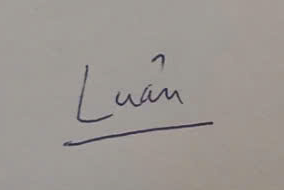 Luân